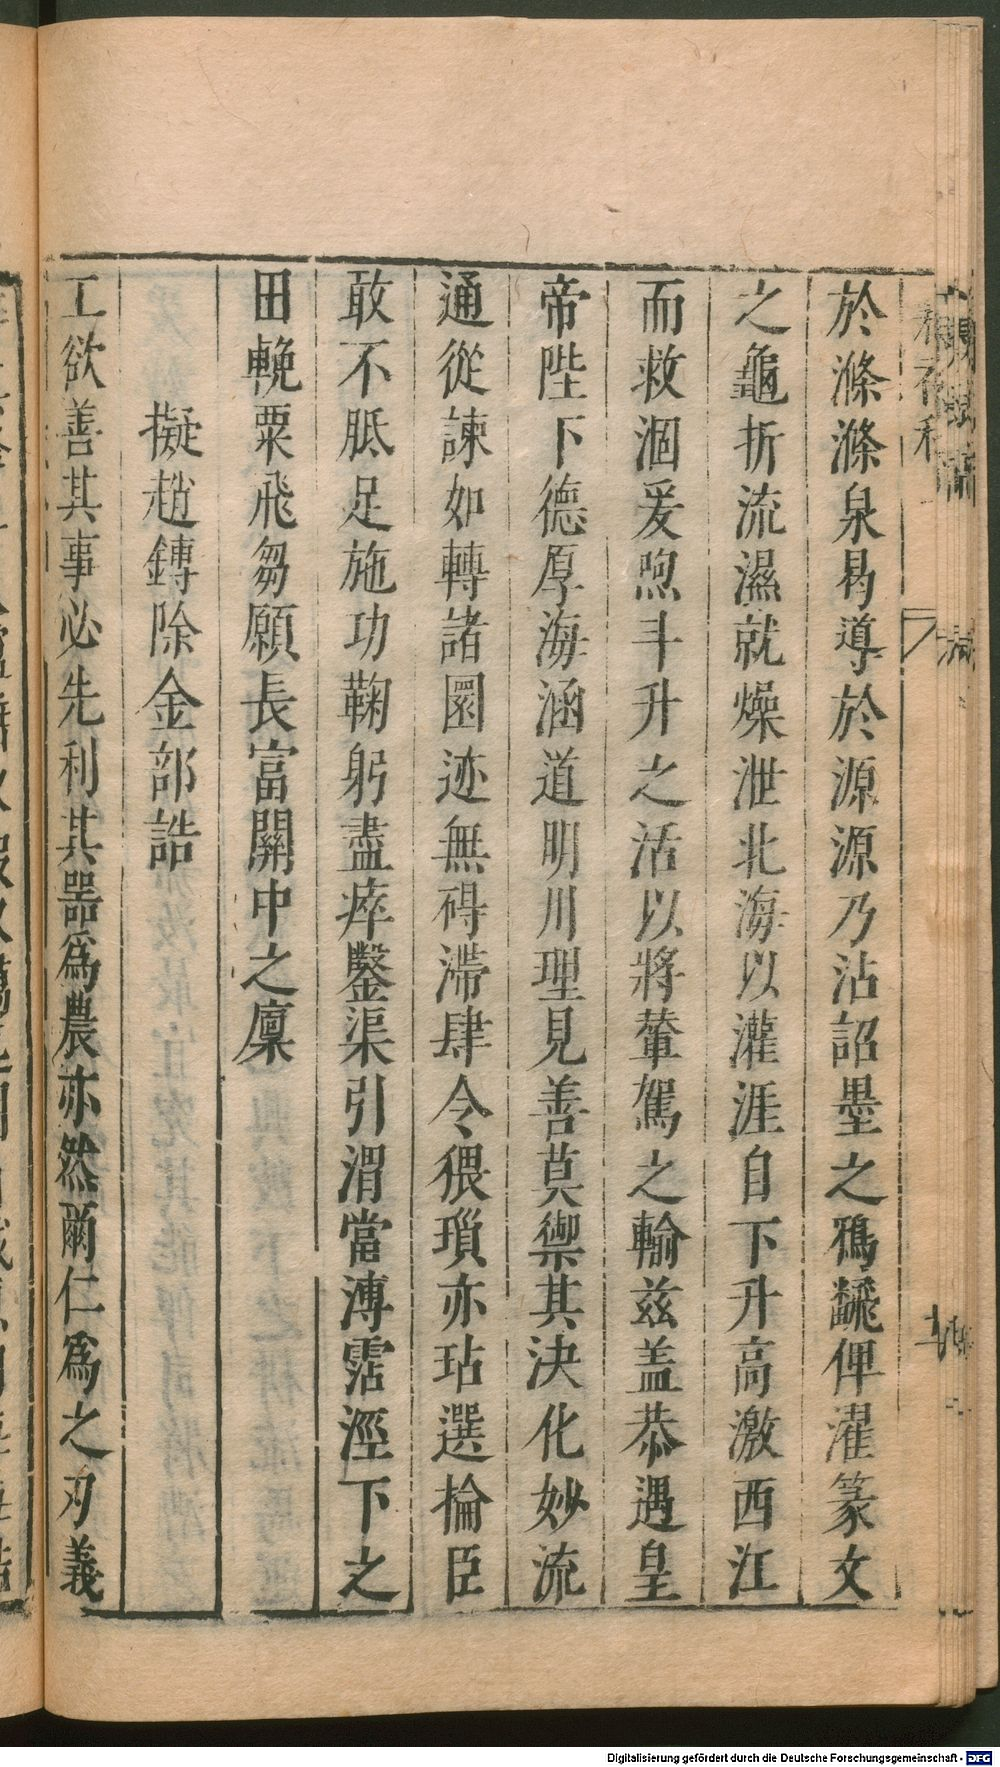 於滌滌泉曷導於源源乃沾詔墨之鴉飜俾濯篆文
之龜折流濕就燥泄北海以灌涯自下升高激西江
而救涸爰煦斗升之活以將輦駕之輸兹盖恭遇皇
帝陛下德厚海涵道明川理見善莫禦其決化妙流
通從諫如轉諸圜迹無碍滯肆令猥瑣亦玷選掄臣
敢不胝足施功鞠躬盡瘁鑿渠引渭當溥霑涇下之
田輓粟飛芻願長富關中之廩
擬趙鏄除金部誥
工欲善其事必先利其器爲農亦然爾仁爲之刃義
Digitalisierung gefördert durch die Deutsche Forschungsgemeinschaft - DFG